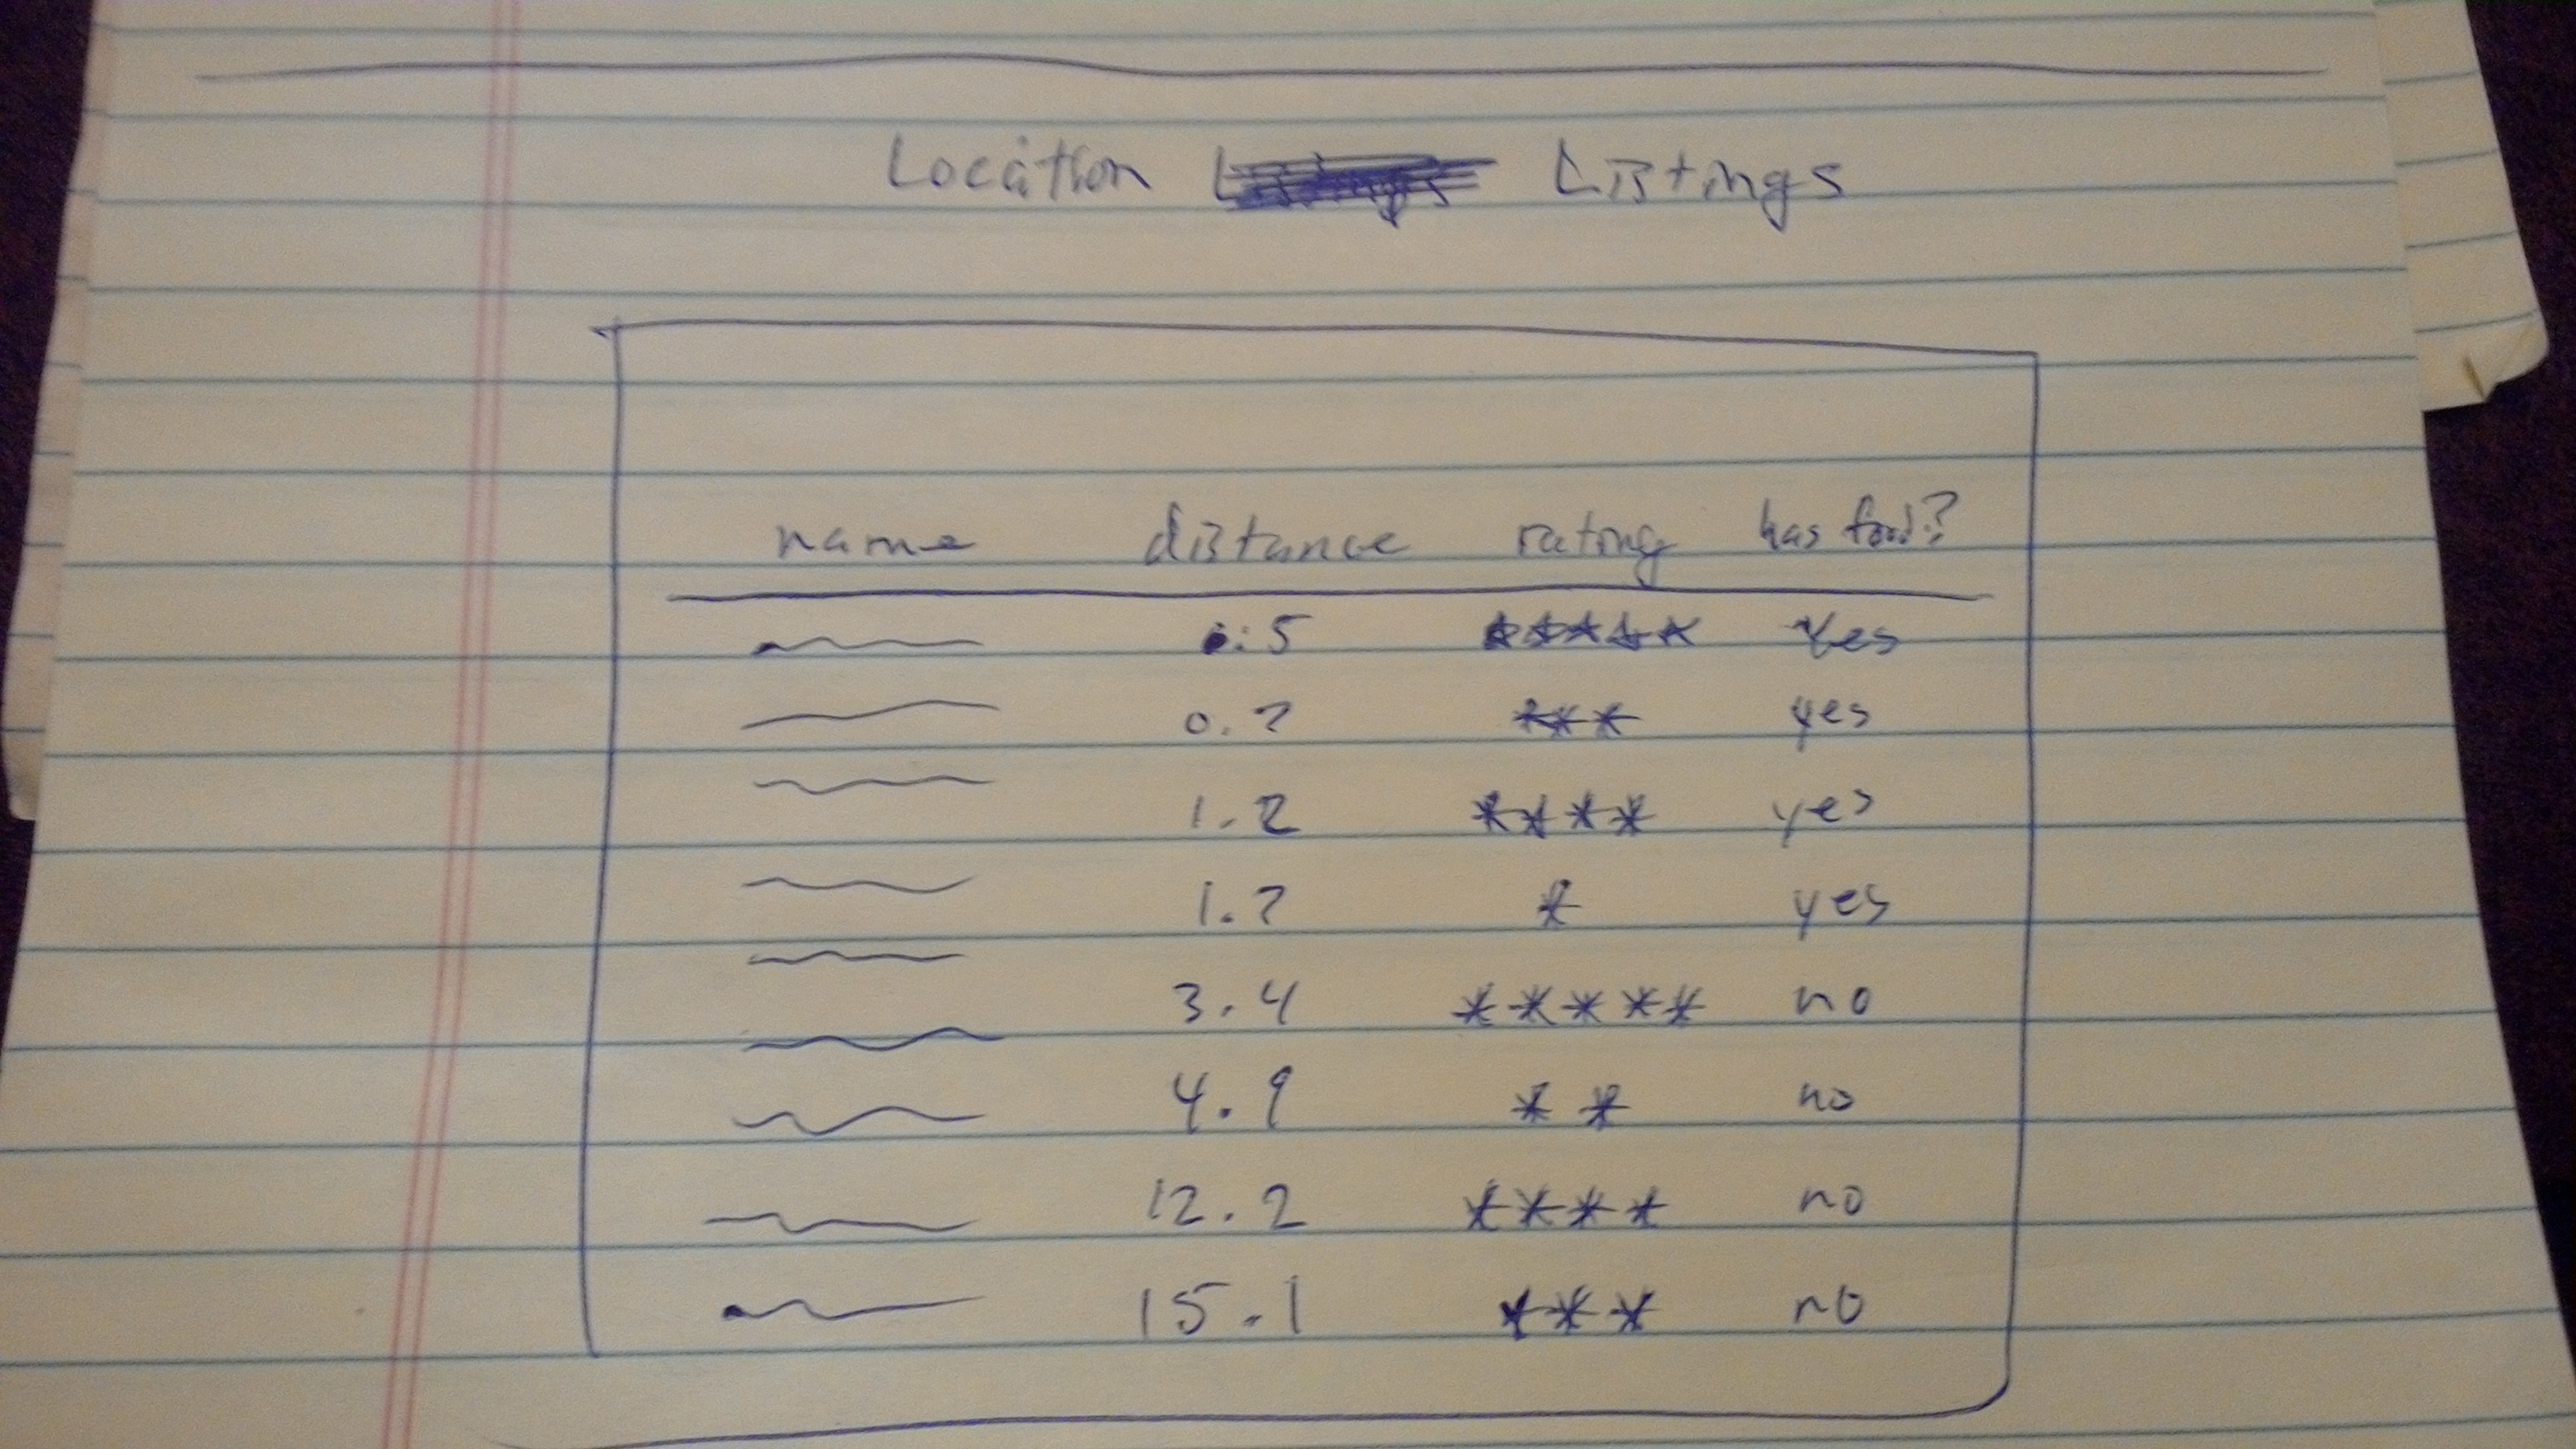 Location Listings
name distance rating has food?
.5 ***** Yes
0.7 *** yes
1.2 **** yes
1.7 * yes
3.4 ***** no
4.9 ** no
12.2 **** no
15.1 *** no